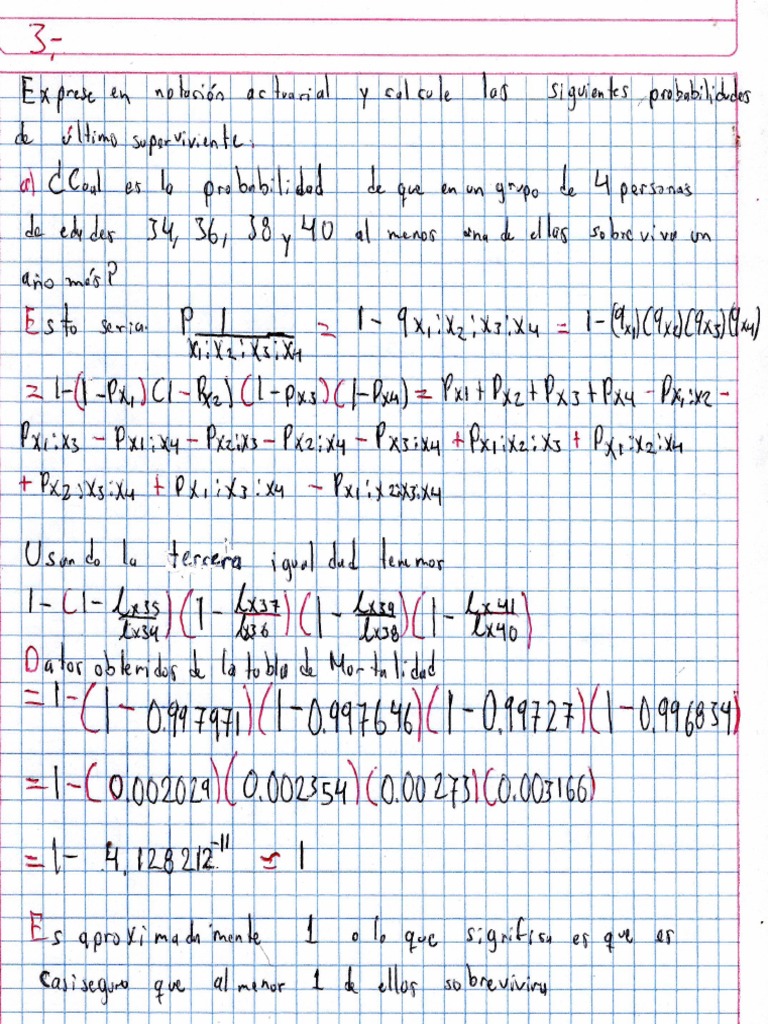 3,-
Exprese en notación actuarial y calcule las siguientes probabilidades
de último superviviente:
a) ¿Cual es la probabilidad de que en un grupo de 4 personas
de edades 34, 36, 38 y 40 al menos una de ellas sobreviva un
año más?
Esto seria. P 1/x₁:x₂:x₃:x₄ = 1 - qx₁:x₂:x₃:x₄ = 1-(qx₁)(qx₂)(qx₃)(qx₄)
= 1-(1-Px₁)(1-Px₂)(1-Px₃)(1-Px₄) = Px₁+Px₂+Px₃+Px₄ - Px₁:x₂ -
Px₁:x₃ - Px₁:x₄ - Px₂:x₃ - Px₂:x₄ - Px₃:x₄ + Px₁:x₂:x₃ + Px₁:x₂:x₄
+ Px₂:x₃:x₄ + Px₁:x₃:x₄ - Px₁:x₂:x₃:x₄
Usando la tercera igualdad tenemos
1-(1-lx35/lx34)(1-lx37/lx36)(1-lx39/lx38)(1-lx41/lx40)
Datos obtenidos de la tabla de Mortalidad
=1-(1-0.997971)(1-0.997646)(1-0.99727)(1-0.996834)
=1-(0.002029)(0.002354)(0.00273)(0.003166)
=1- 4.128212⁻¹¹ ≈ 1
Es aproximadamente 1 o lo que significa es que es
casi seguro que al menor 1 de ellos sobrevivira